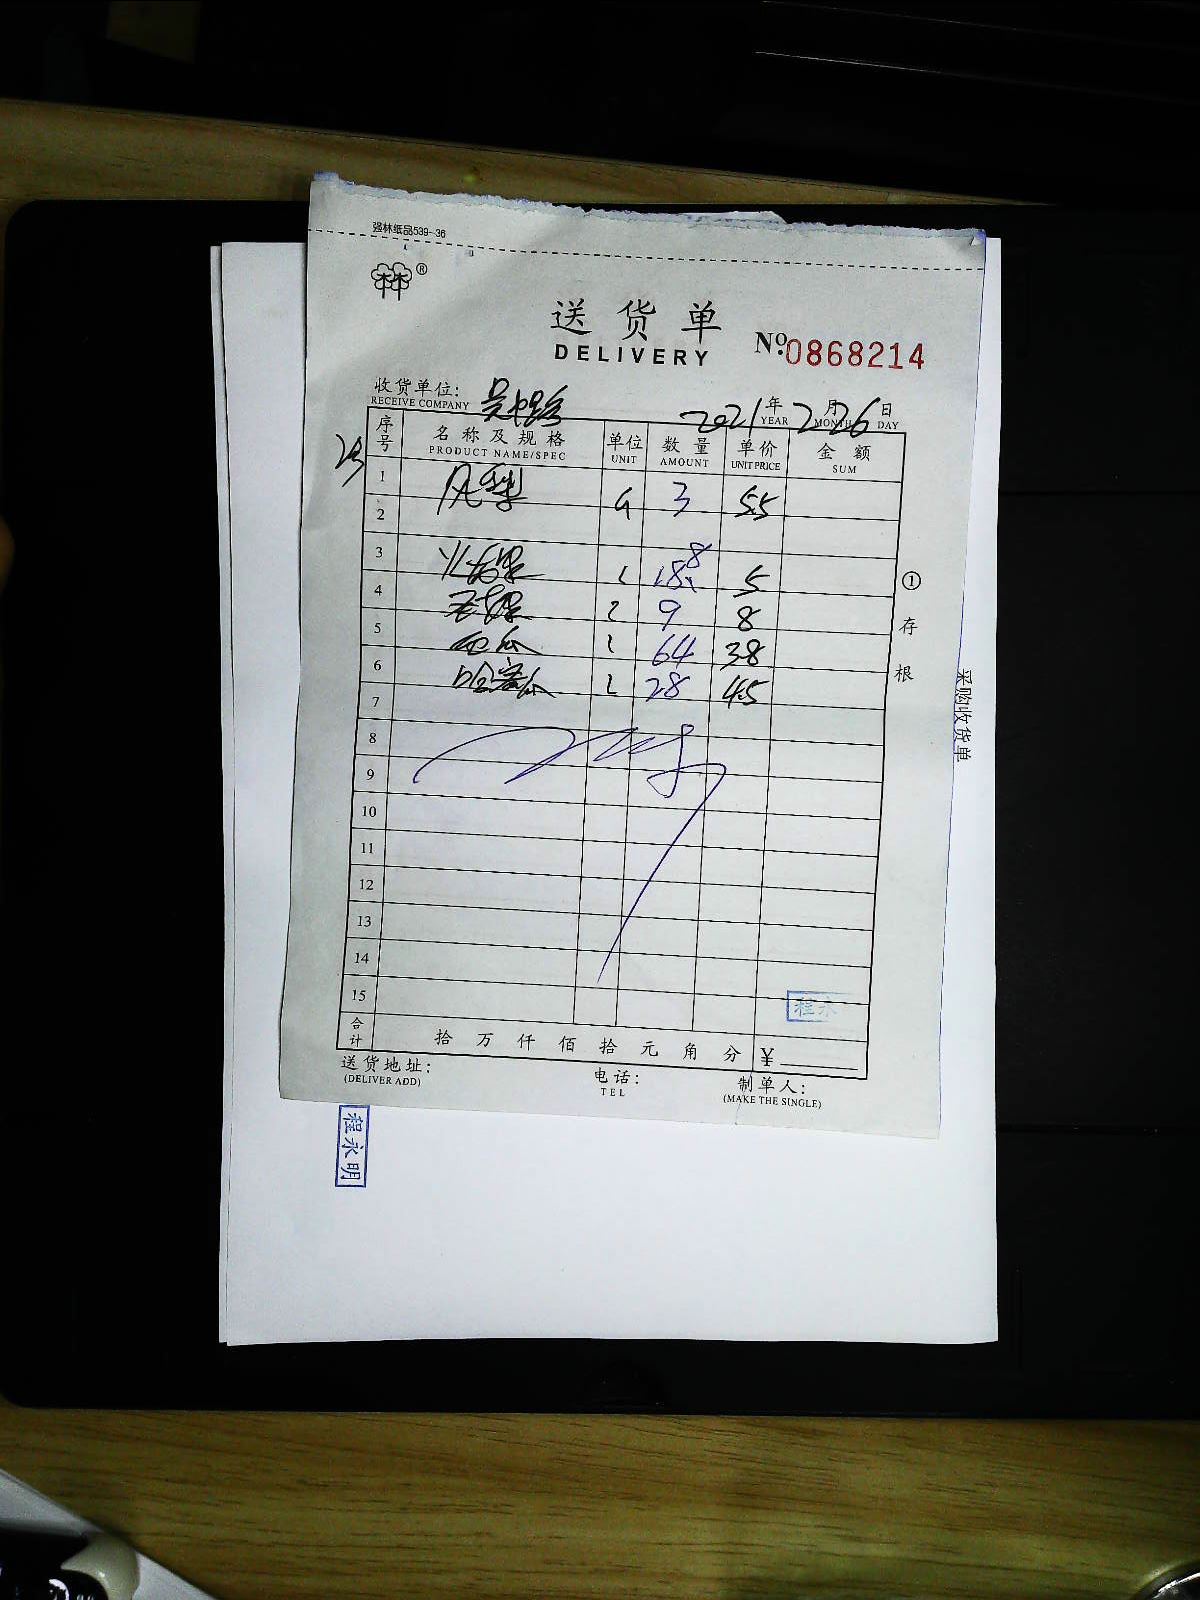 强林纸品539-36
®
送货单
DELIVERY
№0868214
收货单位: 吴中路
RECEIVE COMPANY
2021年2月26日
YEAR MONTH DAY
序号 名称及规格 单位 数量 单价 金额
PRODUCT NAME/SPEC UNIT AMOUNT UNIT PRICE SUM
1 凤梨 个 3 5.5
2
3 火龙果 8 5
4 9 8
5 西瓜 64 3.8
6 哈密瓜 28 4.5
7
8
9
10
11
12
13
14
15
①存根
采购收货单
程永
合计 拾万仟佰拾元角分 ¥
送货地址: 电话: 制单人:
(DELIVER ADD) TEL (MAKE THE SINGLE)
程永明